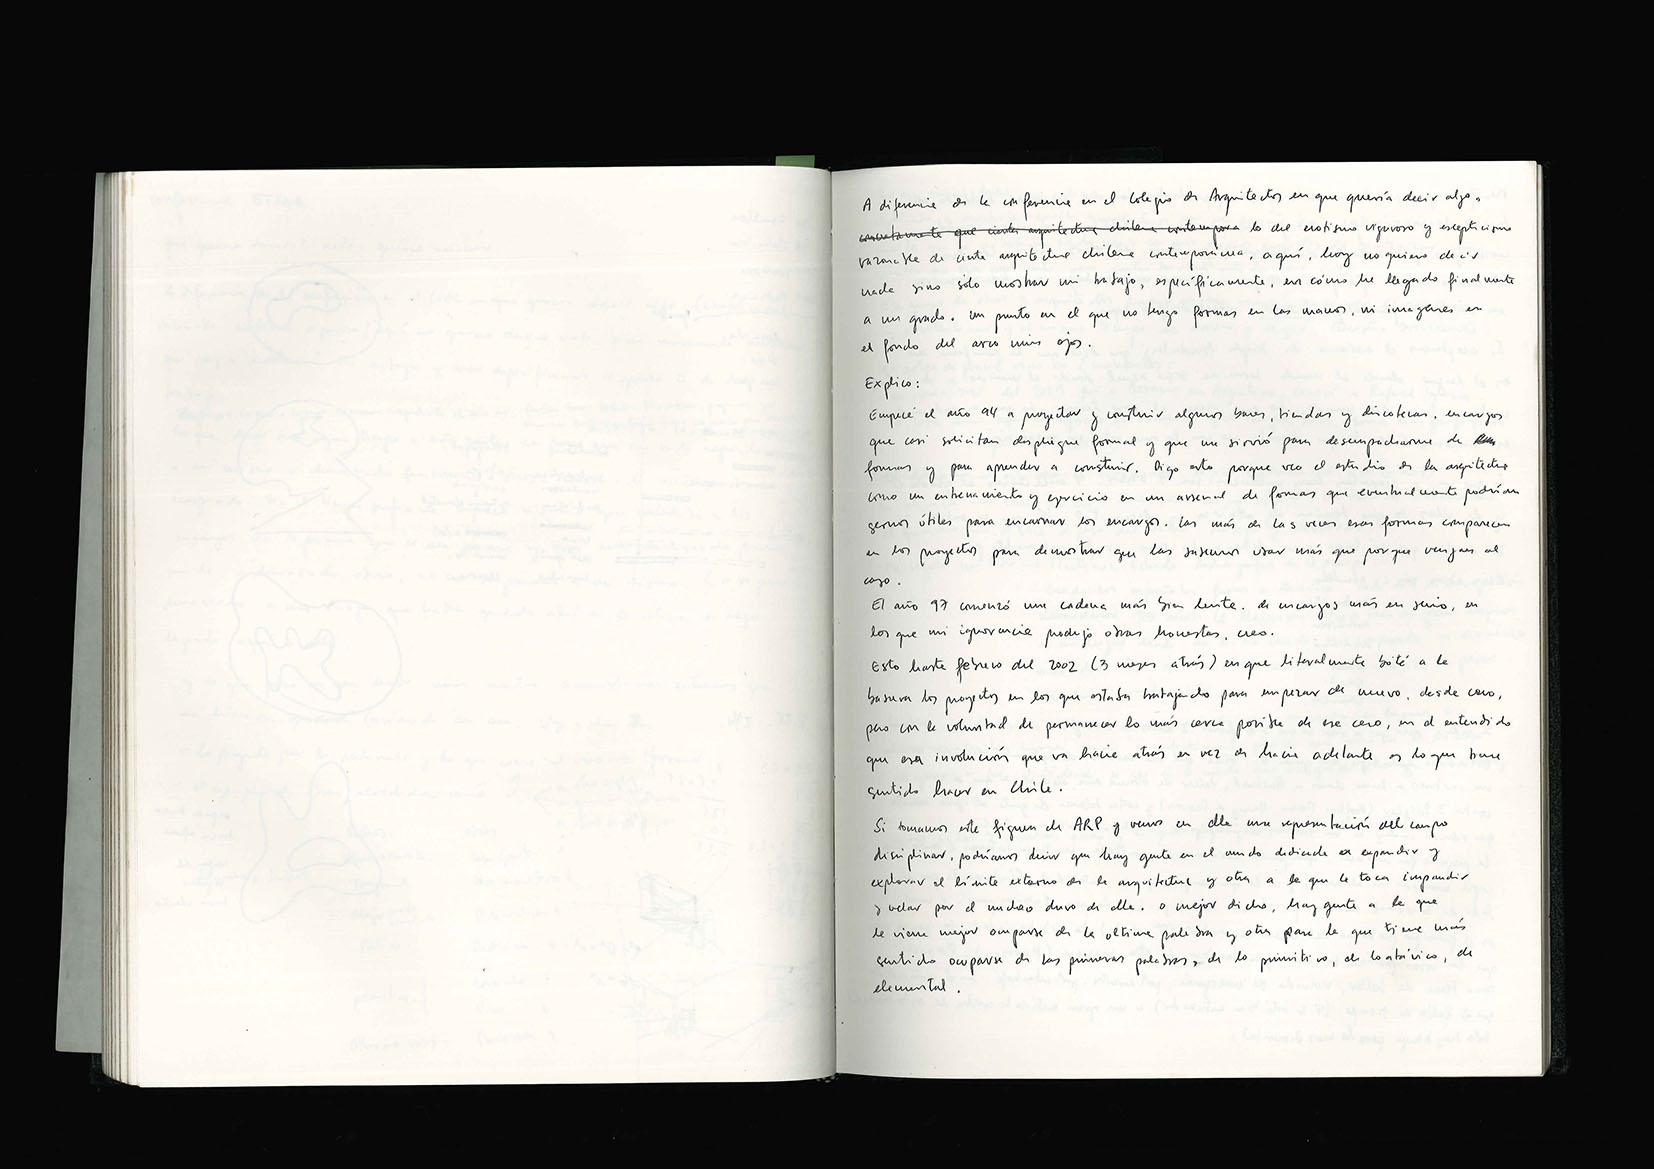 A diferencia de la conferencia en el Colegio de Arquitectos en que quería decir algo,
concretamente que cierta arquitectura chilena contempora lo del erotismo vigoroso y escepticismo
razonable de cierta arquitectura chilena contemporánea, aquí, hoy no quiero decir
nada sino sólo mostrar mi trabajo, específicamente, en cómo he llegado finalmente
a un grado. un punto en el que no tengo formas en las manos, ni imágenes en
el fondo del arco mis ojos.
Explico:
Empecé el año 94 a proyectar y construir algunos bares, tiendas y discotecas. encargos
que casi solicitan despliegue formal y que me sirvió para desempacharme de
formas y para aprender a construir. Digo esto porque veo el estudio de la arquitectura
como un entrenamiento y ejercicio en un arsenal de formas que eventualmente podrían
sernos útiles para encarnar los encargos. Las más de las veces esas formas comparecen
en los proyectos para demostrar que las sabemos usar más que porque vengan al
caso.
El año 97 comenzó una cadena más bien lenta. de encargos más en serio, en
los que mi ignorancia produjo obras honestas, creo.
Esto hasta febrero del 2002 (3 meses atrás) en que literalmente boté a la
basura los proyectos en los que estaba trabajando para empezar de nuevo, desde cero,
pero con la voluntad de permanecer lo más cerca posible de ese cero, en el entendido
que esa involución que va hacia atrás en vez de hacia adelante es lo que tiene
sentido hacer en Chile.
Si tomamos esta figura de ARP y vemos en ella una representación del campo
disciplinar, podríamos decir que hay gente en el mundo dedicada a expandir y
explorar el límite externo de la arquitectura y otra a la que le toca impandir
y velar por el núcleo duro de ella. o mejor dicho, hay gente a la que
le viene mejor ocuparse de la última palabra y otra para la que tiene más
sentido ocuparse de las primeras palabras, de lo primitivo, de lo atávico, de
elemental.